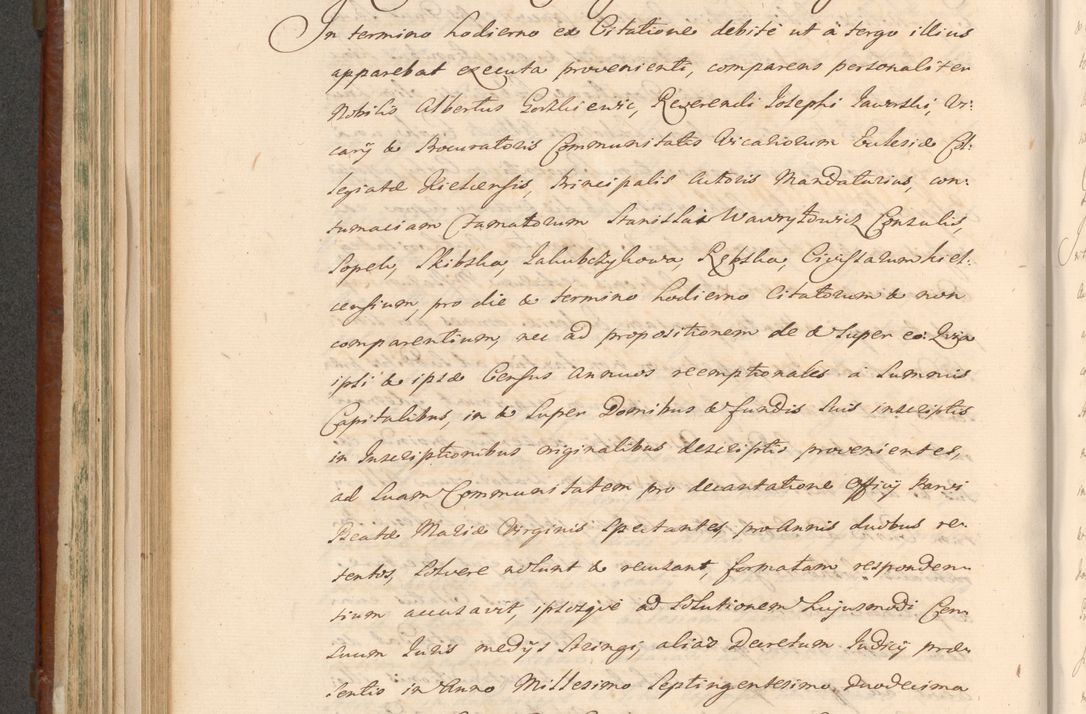 In termino hodierno ex Citatione debite ut à tergo illius
apparebat executa provenienti, comparens personaliter
Nobilis Albertus Gorzkiewic, Reverendi Josephi Jaworski, Vi:
carÿ & Procuratoris Communitatis Vicariorum Ecclesiæ Col:
legiatæ Kielcensis, Principalis Actoris Mandatarius, con:
tumaciam Citatorum Stanislai Wawrytowicz Consulis,
Sopel, Skibska, Jakubczykowa, Rębska, Civistarum Kiel:
censium, pro die & termino hodierno Citatorum & non
comparentium, nec ad propositionem de & super eo: Quia
ipsi & ipsæ Census Annuos reemptionales à Summis
Capitalibus, in & super Domibus & fundis suis inscriptis
in Inscriptionibus originalibus descriptis provenientes,
ad suam Communitatem pro decantatione Officij Parvi
Beatæ Mariæ Virginis spectantes, pro Annis duobus re:
tentos, solvere nolunt & recusant, formatam responden:
tium accusavit, ipsosque ad solutionem hujusmodi Cen:
suum Juris medijs stringi, alias Decretum Judicij præ:
sentis in Anno Millesimo Septingentesimo Duodecimo